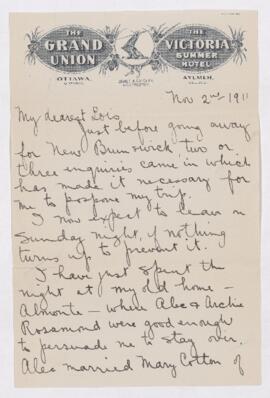 THE GRAND UNION
OTTAWA,
THE VICTORIA
SUMMER HOTEL
AYLMER,
Nov 2nd 1911
My dearest Lois
Just before going away
for New Brunswick two or
three enquiries came in which
has made it necessary for
me to postpone my trip.
I now expect to leave on
Sunday night, if nothing
turns up to prevent it.
I have just spent the
night at my old home –
Almonte – where Alec & Archie
Rosamond were good enough
to persuade me to stay over.
Alec married Mary Cotton of